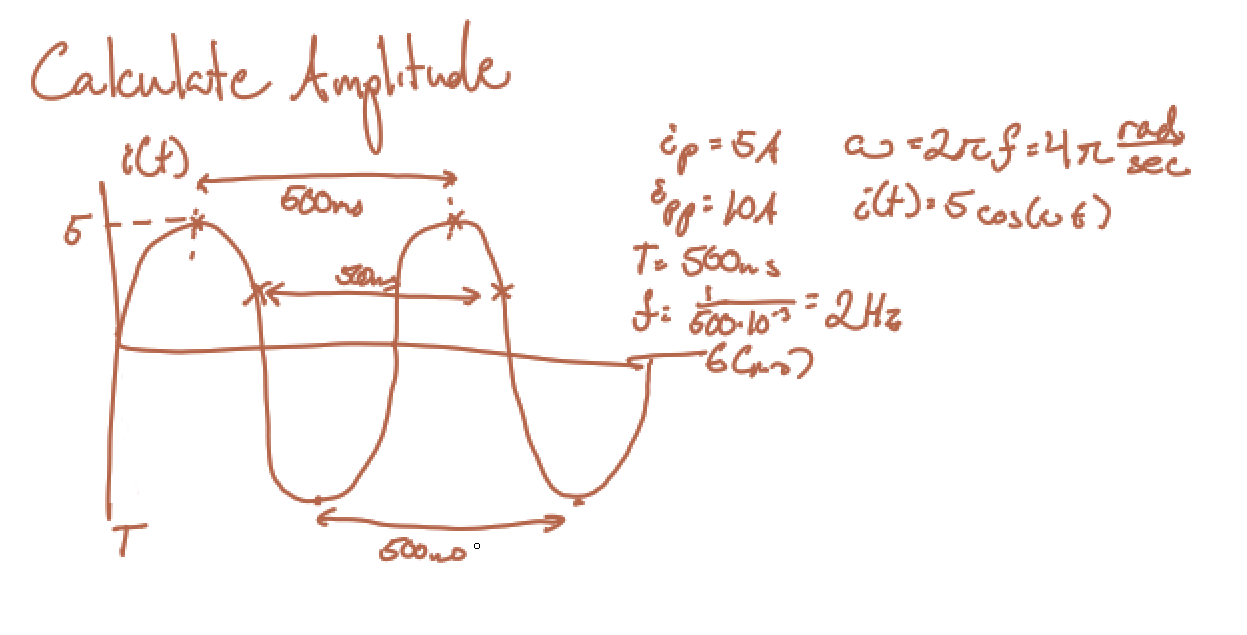 Calculate Amplitude
i(t)
500ms
5
500ms
500ms
T
i_p = 5A
i_pp = 10A
T = 500ms
f = 1/500·10⁻³ = 2Hz
t(ms)
ω = 2πf = 4π rad/sec
i(t) = 5 cos(ωt)